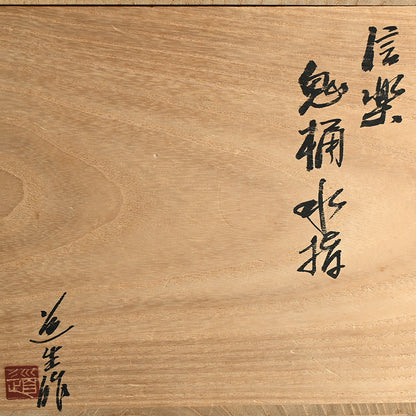 信楽
鬼桶水指
道生作
道